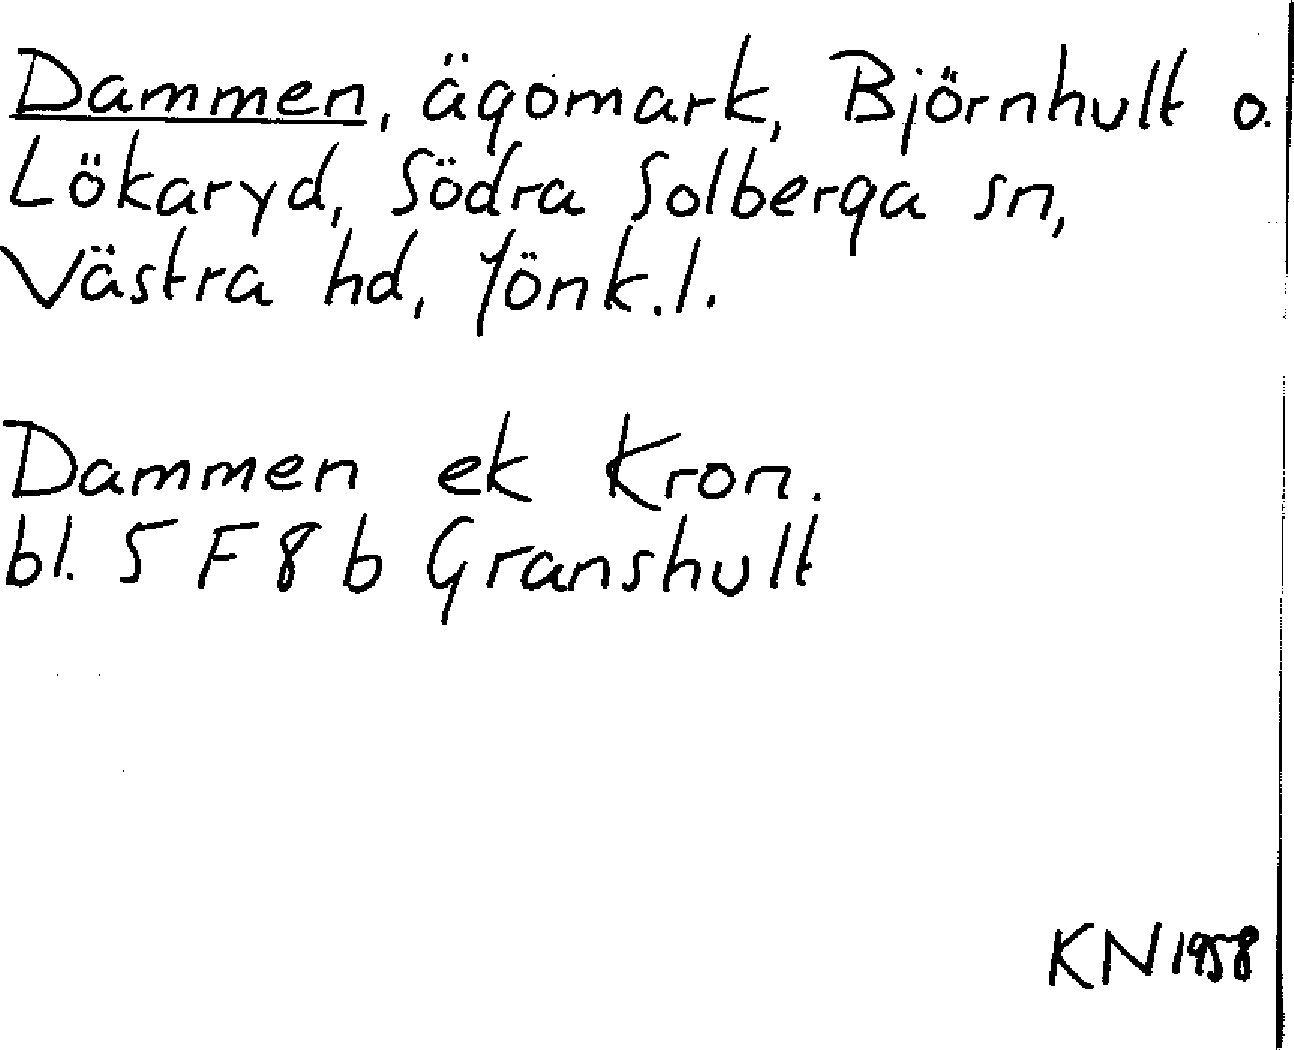 Dammen, ägomark, Björnhult o.
Lökaryd, Södra Solberga sn,
Västra hd, Jönk.l.
Dammen ek Kron.
bl. 5 F 8 b Granshult
KN 1958